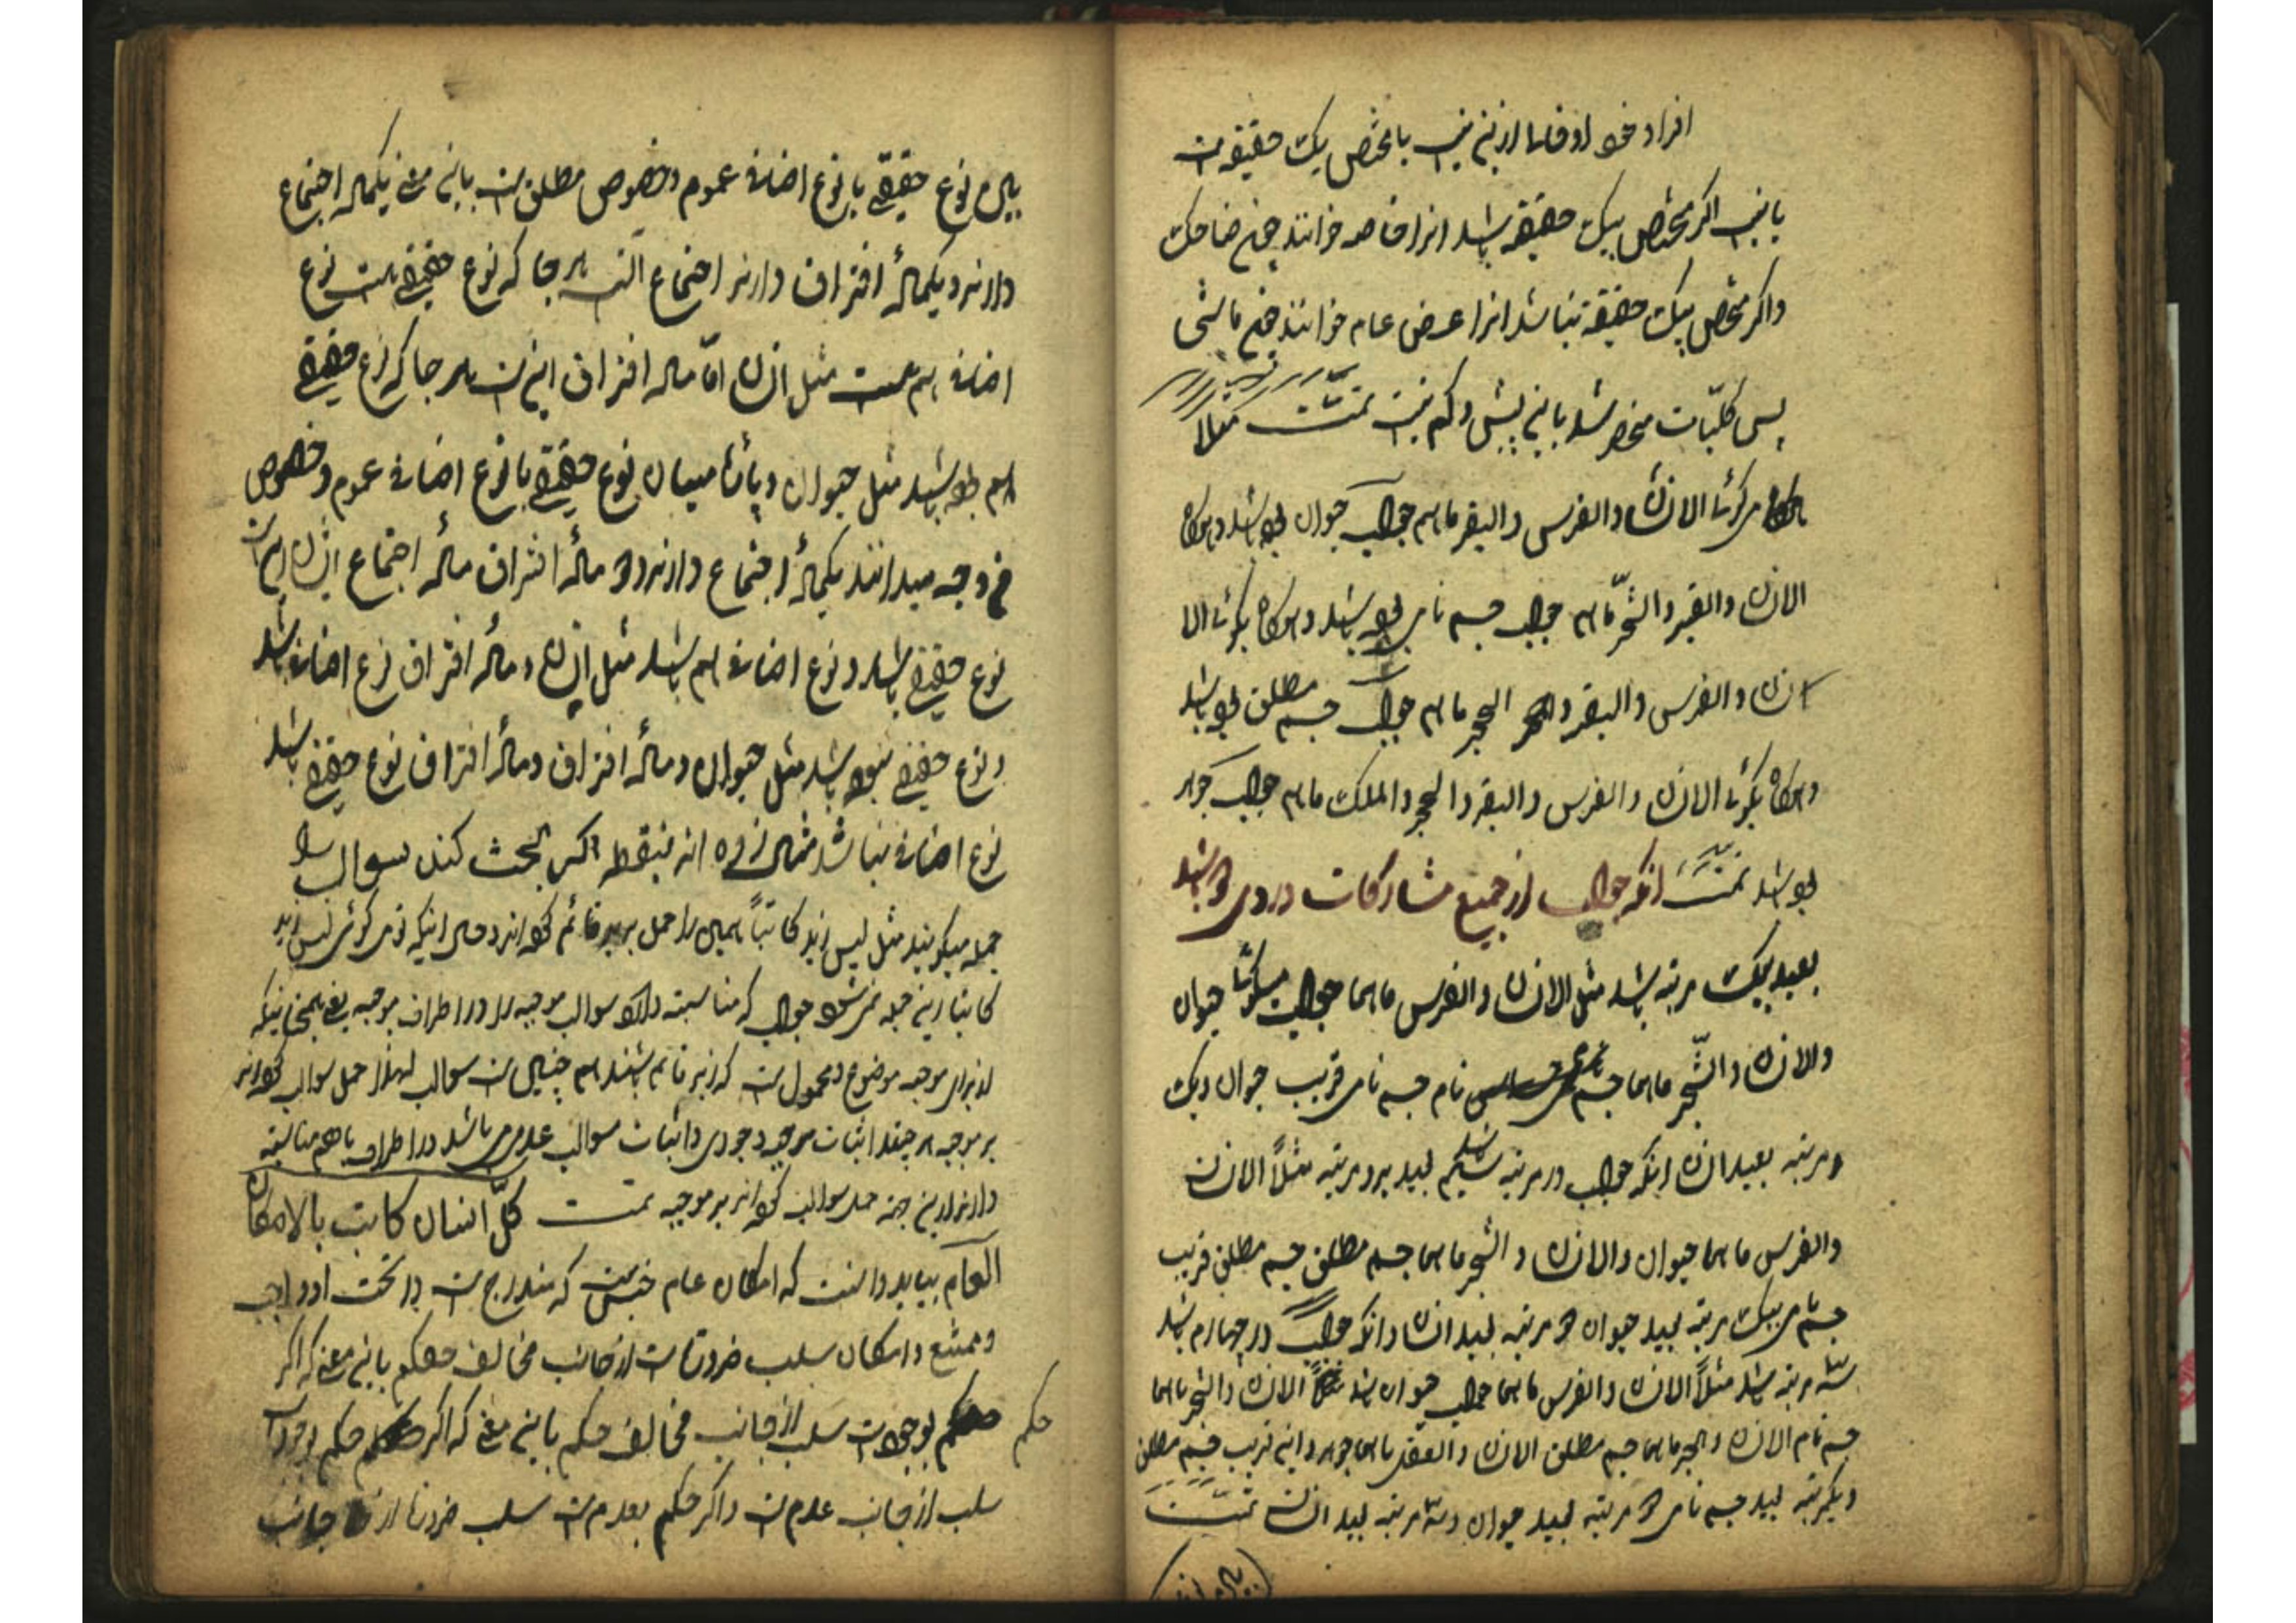 افراد خود او فاما از نیز نیست یا مختص یک حقیقتست
یا نیست اگر مختص بیک حقیقة باشد انرا خاصه خوانند چون ضاحک
واکر مختص بیک حقیقة نباشد انرا عرض عام خوانند چون ماشی
پس کلیّات منحصر شد باین پنش و کم نیست تمّت مثلا
هرکاه مرکوئی الانسان والفرس والبقر ماهم جواب حیوان باشد و هرکاه
الانسان والبقر والشّجر ماهم جواب جسم نامی باشد و هرکاه بکوئی الا
انسان والفرس والبقر الحجر ماهم جواب جسم مطلق باشد
و هرکاه بکوئی الانسان والفرس والبقر والحجر والملک ماهم جواب جوهر
باشد تمّت انکه جواب از جمیع مشارکات در وی باشد
بعید بیک مرتبه باشد مثل الانسان والفرس ماهما جواب میکوئی حیوان
والانسان والشّجر ماهما جسم نام جسم نامی قریب حیوان و یک
مرتبه بعید انسان انکه جواب در مرتبه سیکم باشد بعید بدو مرتبه مثلاً الانسان
والفرس ماهما حیوان والانسان والشّجر ماهما جسم مطلق جسم مطلق قریب
جسم نامی بیک مرتبه بعید حیوان دو مرتبه بعید انسان وانکه جواب در چهارم باشد
سّه مرتبه باشد مثلاً الانسان والفرس ماهما جواب حیوان باشد الانسان والشّجر ماهما
جسم نام الانسان والحجر ماهما جسم مطلق الانسان والعقل ماهما جوهر و این قریب جسم مطلق
و یکمرتبه بعید جسم نامی دو مرتبه بعید حیوان و سّه مرتبه بعید انسان تمّت
بین نوع حقیقی با نوع اضافی عموم وخصوص مطلق است باین معنی یکماده اجتماع
دارند و یکماده افتراق دارند اجتماع انست هر جا که نوع حقیقی هست نوع
اضافی هم هست مثل انسان امّا ماده افتراق اینست هر جا که نوع حقیقی
باشد مثل حیوان و میان نوع حقیقی با نوع اضافی عموم وخصوص
من وجه میدانند یکماده اجتماع دارند و دو مادّه افتراق مادّه اجتماع انسان است
نوع حقیقی باشد و نوع اضافی هم باشد مثل انسان و مادّه افتراق نوع اضافی باشد
و نوع حقیقی نبوده باشد مثل حیوان و مادّه افتراق و مادّه افتراق نوع حقیقی باشد
نوع اضافی نباشد مثال زده اند بنقطه اکر بحث کند سوالب را
حمله میکویند مثل لیس زید کاتباً همین را حمل بر زید قائم کرده اند و حال اینکه توی کوئی لیس زید
کاتبا این حمله نمی شود جواب که مناسبت دارد سوالب موجبه را در اطراف موجبه یعنی همچنانیکه
از برای موجبه موضوع و محمول است که زید قائم باشند هم چنین است سوالب لهذا حمل سوالب کرده اند
بر موجبه هر چند اثبات موجبه وجودی و اثبات سوالب عدمی می باشد در اطراف با هم مناسبة
دارند از این جهة حمل سوالب کرده اند بر موجبه تمت کلّ انسان کاتب بالامکان
العام بباید دانست که امکان عام جنس است که مندرج است در تحت او واجب
و ممتنع و امکان سلب ضرورتست از جانب مخالف حکم باین معنی که اگر
حکم بوجود است سلب از جانب مخالف حکم باین معنی که اگر حکم بوجود است
سلب از جانب عدم است واکر حکم بعدم است سلب ضرورة از جانب